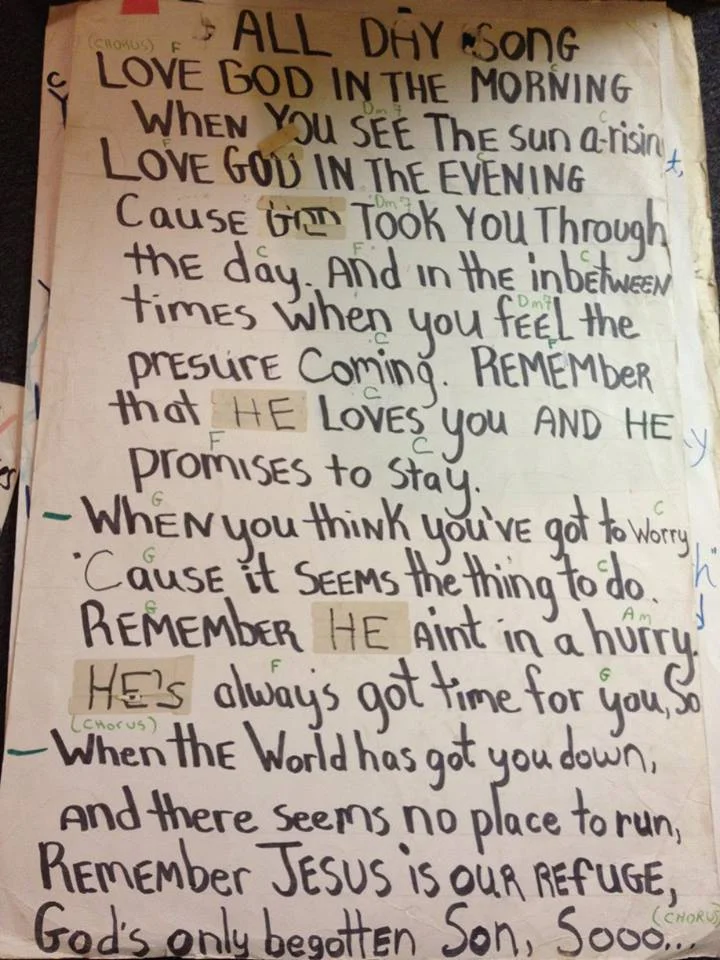 ALL DAY Song
(CHORUS) F C
LOVE GOD IN THE MORNING
Dm7 C
WHEN YOU SEE The sun a-risin
F C
LOVE GOD IN ThE EVENING
Dm7
Cause Took You Through
C F C
thE day. And in the inbetwEEN
Dm7
timES when you fEEL the
C F
prESurE Coming. REMEMber
C
that HE LOVES you AND HE
F C
promisES to stay.
G C
- WhEN you think you'vE got to Worry
G C
'CausE it SEEMS the thing to do.
G Am
REMEMBER HE aint in a hurry.
F G
HE's always got time for you, So
(CHORUS)
- When thE World has got you down,
And there seems no place to run,
REMEMber JESUS is OUR REfUGE,
(CHORUS)
God's only begottEN Son, Sooo...